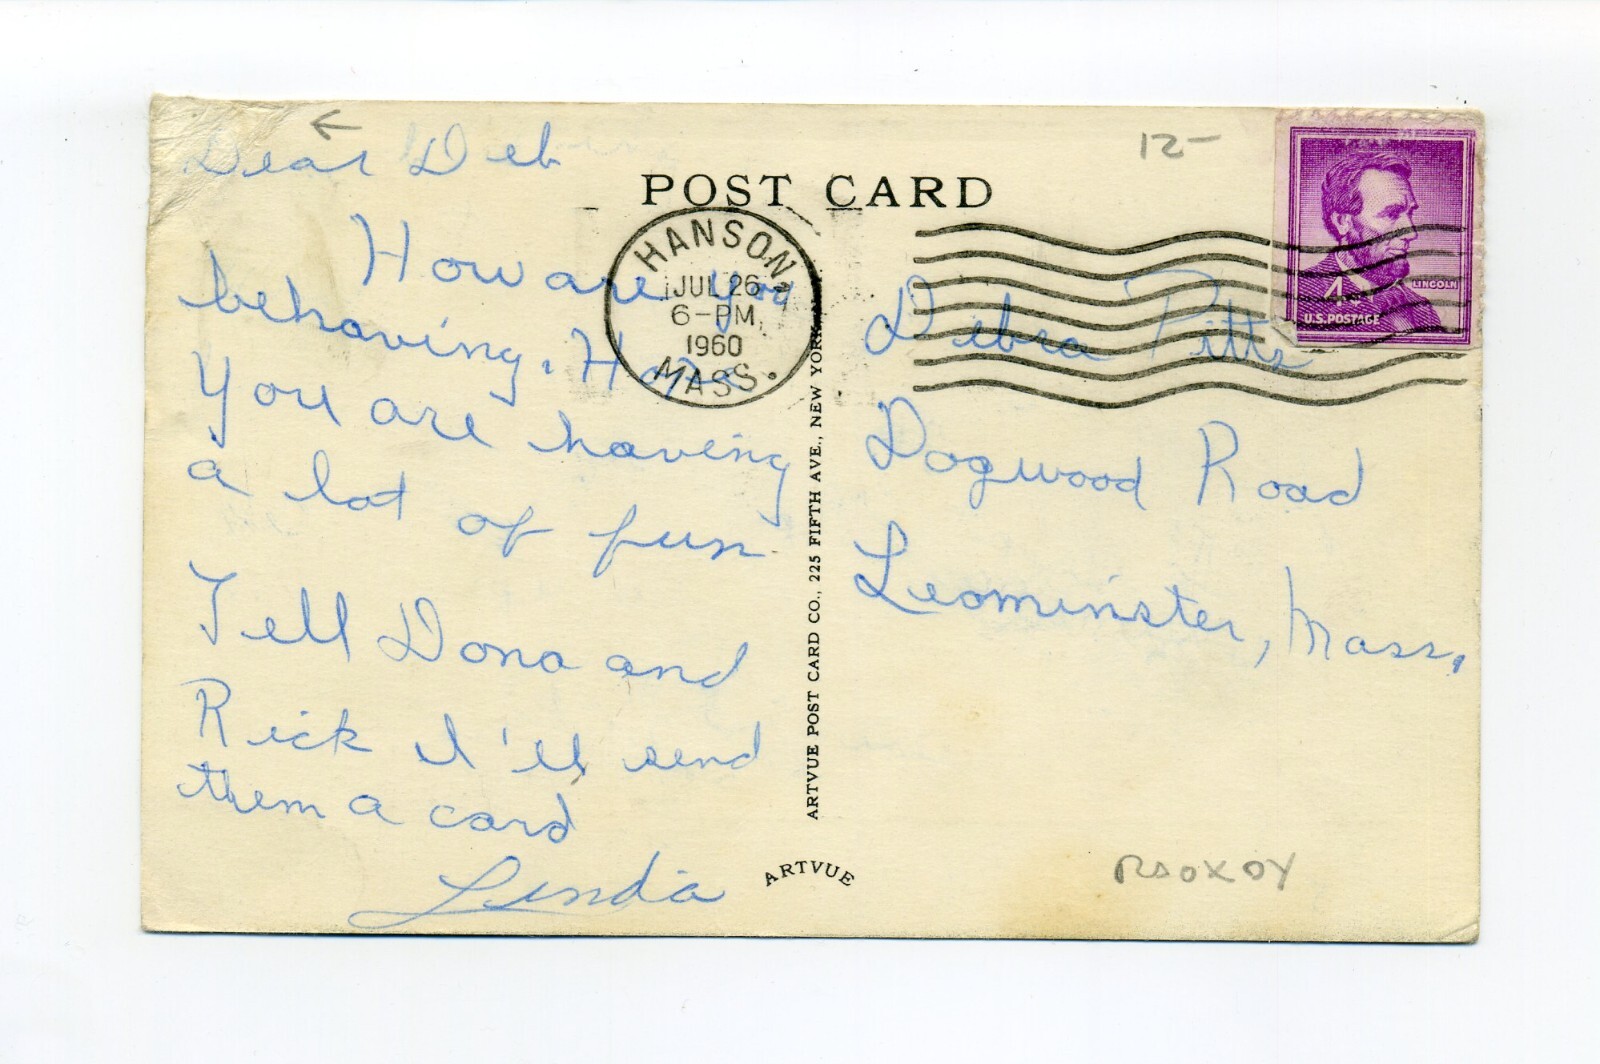 Dear Deb
How are you
behaving. Hope
You are having
a lot of fun
Tell Dona and
Rick I'll send
them a card
Linda
POST CARD
12-
HANSON
JUL 26
6-PM
1960
MASS.
LINCOLN
4¢
U.S. POSTAGE
Debra Pitts
Dogwood Road
Leominster, Mass.
ARTVUE POST CARD CO., 225 FIFTH AVE., NEW YORK
ARTVUE